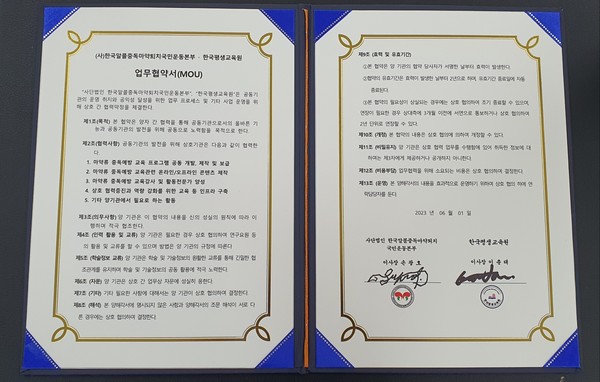 (사)한국알콜중독마약퇴치국민운동본부 · 한국평생교육원
업무협약서(MOU)
"사단법인 한국알콜중독마약퇴치국민운동본부", "한국평생교육원"은 공동기
관의 운영 취지와 공익성 달성을 위한 업무 프로세스 및 기타 사업 운영을 위
해 상호 간 협력약정을 체결한다.
제1조(목적) 본 협약은 양자 간 협력을 통해 공동기관으로서의 올바른 기
능과 공동기관의 발전을 위해 공동으로 노력함을 목적으로 한다.
제2조(협력사항) 공동기관의 발전을 위해 상호기관은 다음과 같이 협력한
다.
1. 마약류 중독예방 교육 프로그램 공동 개발, 제작 및 보급
2. 마약류 중독예방 교육관련 온라인/오프라인 콘텐츠 제작
3. 마약류 중독예방 교육강사 및 활동전문가 양성
4. 상호 협력증진과 역량 강화를 위한 교육 등 인프라 구축
5. 기타 양기관에서 필요로 하는 활동
제3조(의무사항) 양 기관은 이 협약의 내용을 신의 성실의 원칙에 따라 이
행하며 적극 협조한다.
제4조(인력 활용 및 교류) 양 기관은 필요한 경우 상호 협의하여 연구요원 등
의 활용 및 교류를 할 수 있으며 방법은 양 기관의 규정에 따른다.
제5조(학술정보 교류) 양 기관은 학술 및 기술정보의 원활한 교류를 통해 긴밀한 협
조관계를 유지하며 학술 및 기술정보의 공동 활용에 적극 노력한다.
제6조(자문) 양 기관은 상호 간 업무상 자문에 성실히 응한다.
제7조(기타) 기타 필요한 사항에 대해서는 양 기관이 상호 협의하여 결정한다.
제8조(해석) 본 양해각서에 명시되지 않은 사항과 양해각서의 조문 해석이 서로 다
른 경우에는 상호 협의하여 결정한다.
제9조 (효력 및 유효기간)
①본 협약은 양 기관의 협약 당사자가 서명한 날부터 효력이 발생한다.
②협약의 유효기간은 효력이 발생한 날부터 2년으로 하며, 유효기간 종료일에 자동
종료된다.
③본 협약의 필요성이 상실되는 경우에는 상호 협의하여 조기 종료할 수 있으며,
연장이 필요할 경우 상대측에 1개월 이전에 서면으로 통보하거나 상호 협의하여
2년 단위로 연장할 수 있다.
제10조 (개정) 본 협약의 내용은 상호 협의에 의하여 개정할 수 있다.
제11조 (비밀유지) 양 기관은 상호 협력 업무를 수행함에 있어 취득한 정보에 대
하여는 제3자에게 제공하거나 공개하지 아니한다.
제12조 (비용부담) 업무협력을 위해 소요되는 비용은 상호 협의하여 결정한다.
제13조 (운영) 본 양해각서의 내용을 효과적으로 운영하기 위하여 상호 협의 하에 연
락담당자를 둔다.
2023 년 06 월 01 일
사단법인 한국알콜중독마약퇴치
국민운동본부
한국평생교육원
이사장 손 광 호